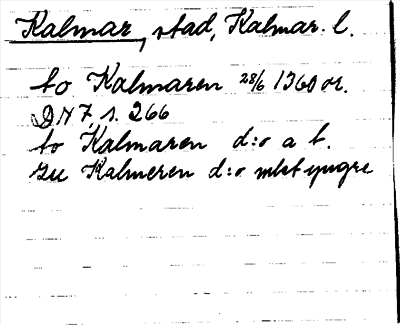 Kalmar, stad, Kalmar. l.
to Kalmaren 28/6 1360 or.
DN 7, s. 266
to Kalmaren d:o a b.
zu Kalmeren d:o mlt yngre